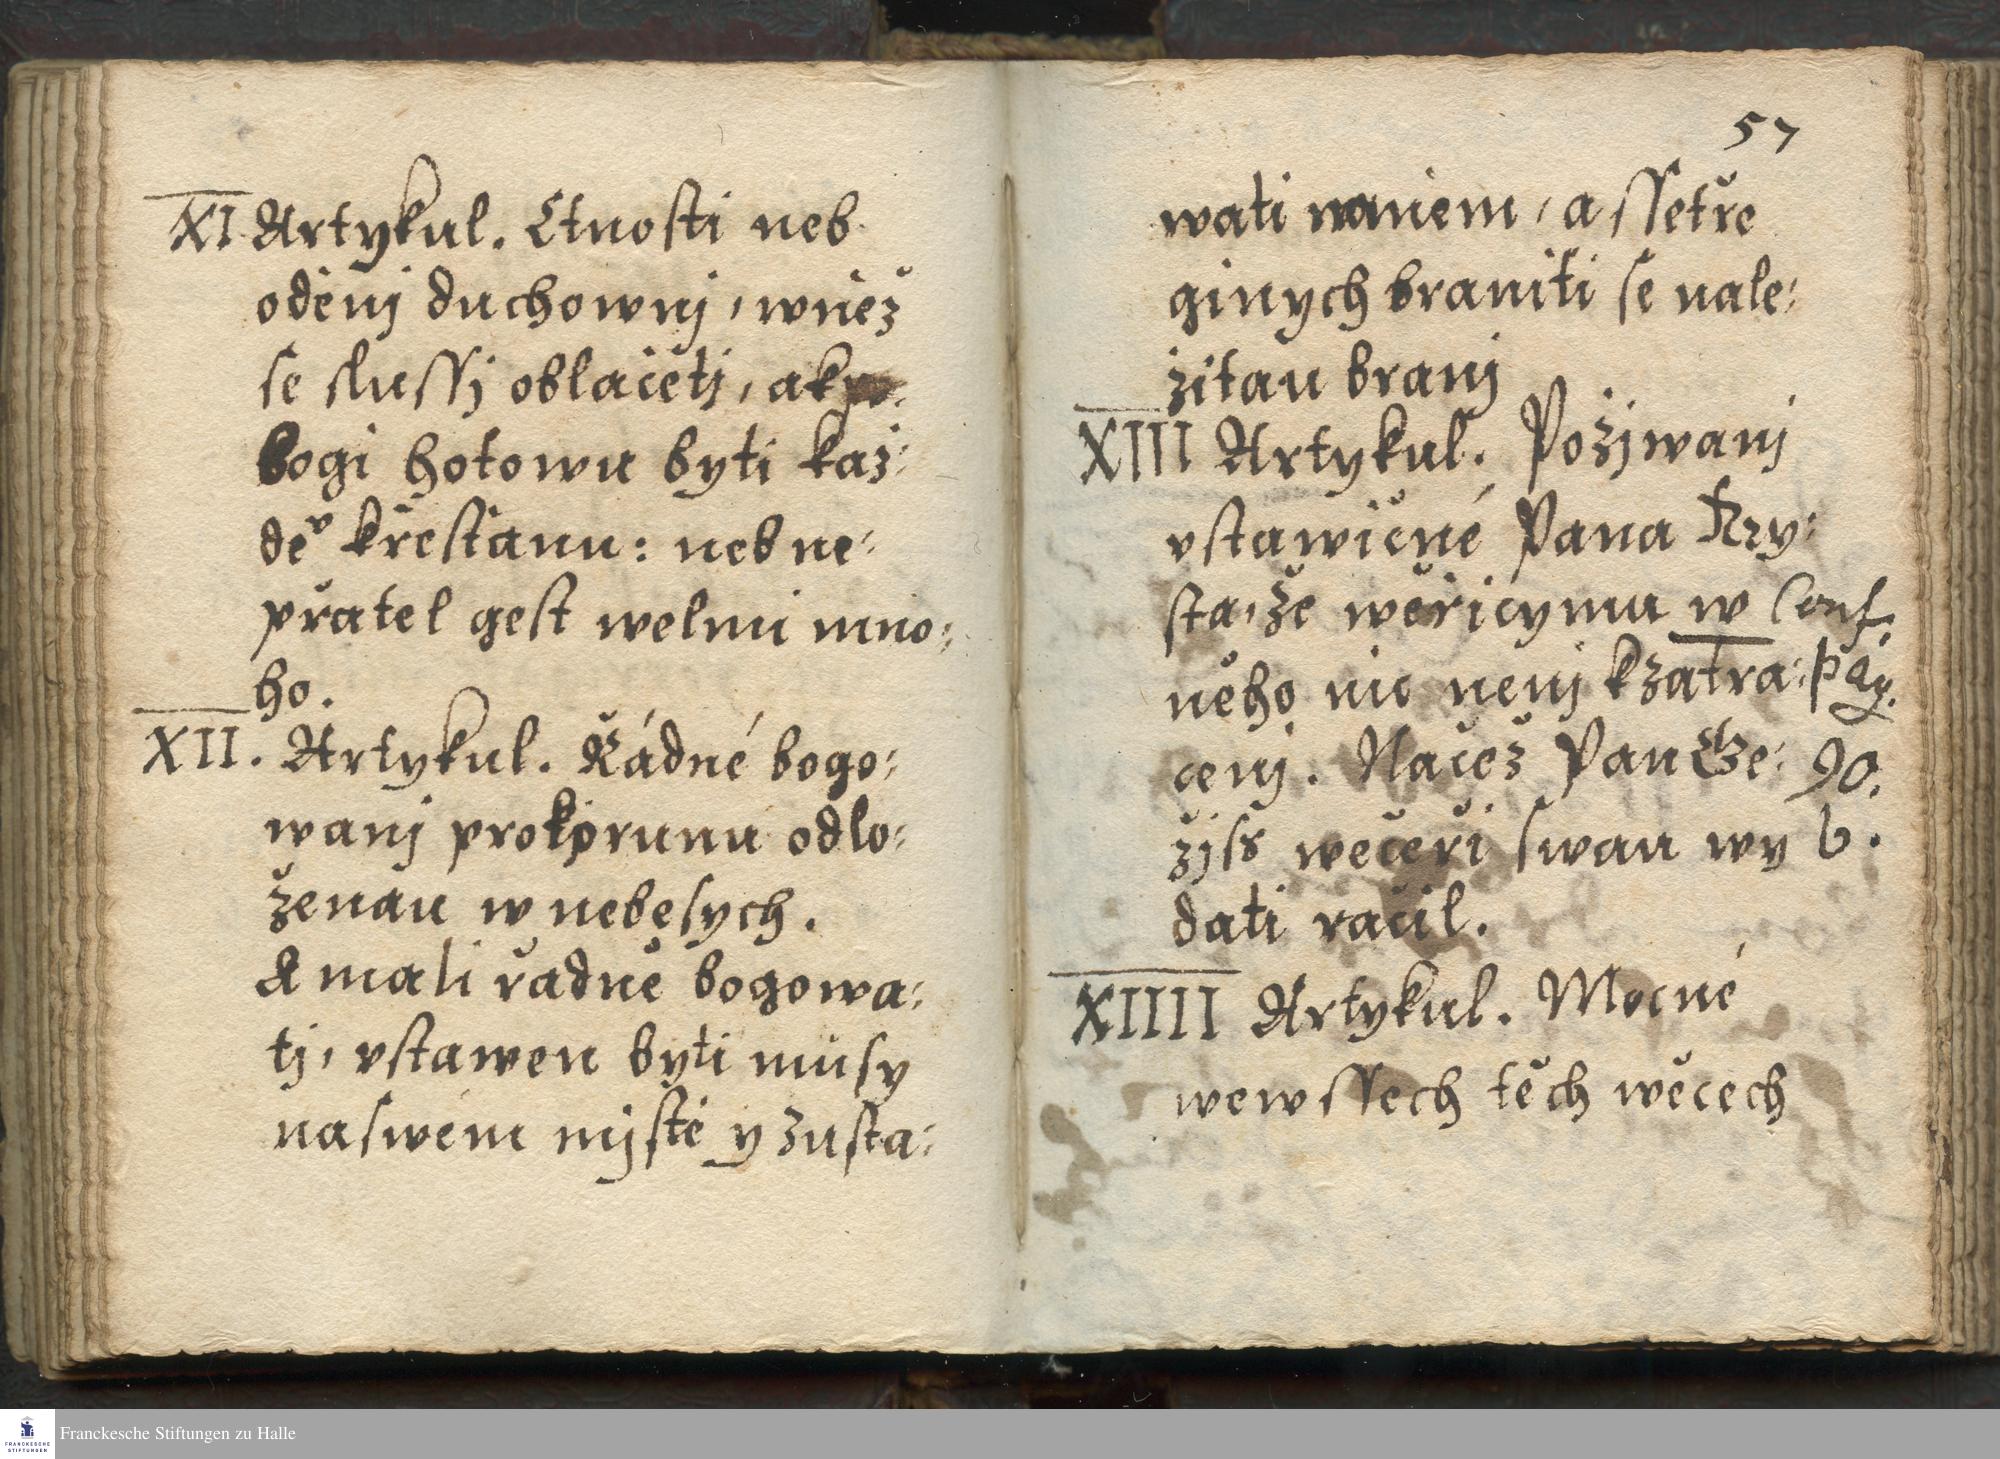 XI Artykul. Ctnosti neb
oděnj duchownj, wněž
se slussj oblačetj, akp
bogi hotowu byti kaž:
dě͛ křestianu: neb ne:
přátel gest welmi mno:
ho.
XII. Artykul. Řádné bogo:
wanj pro korunu odlo:
ženau w nebesych.
A mali řadně bogowa:
tj, vstawen byti musy
naswém mjstě y zusta:
57
wati wněm, a ssetře
ginych braniti se nale:
žitau branj
XIII Artykul. Požjwanj
vstawičné Pana Kry:
sta, že wěřicymu w
něho nic nenj kzatra:
cenj. Načež Pan Ge:
žjss wečeři swau wy
dati račil.
Conf.
pag.
90.
b.
XIIII Artykul. Mocné
wewssech těch wěcech
Franckesche Stiftungen zu Halle
FRANCKESCHE
STIFTUNGEN